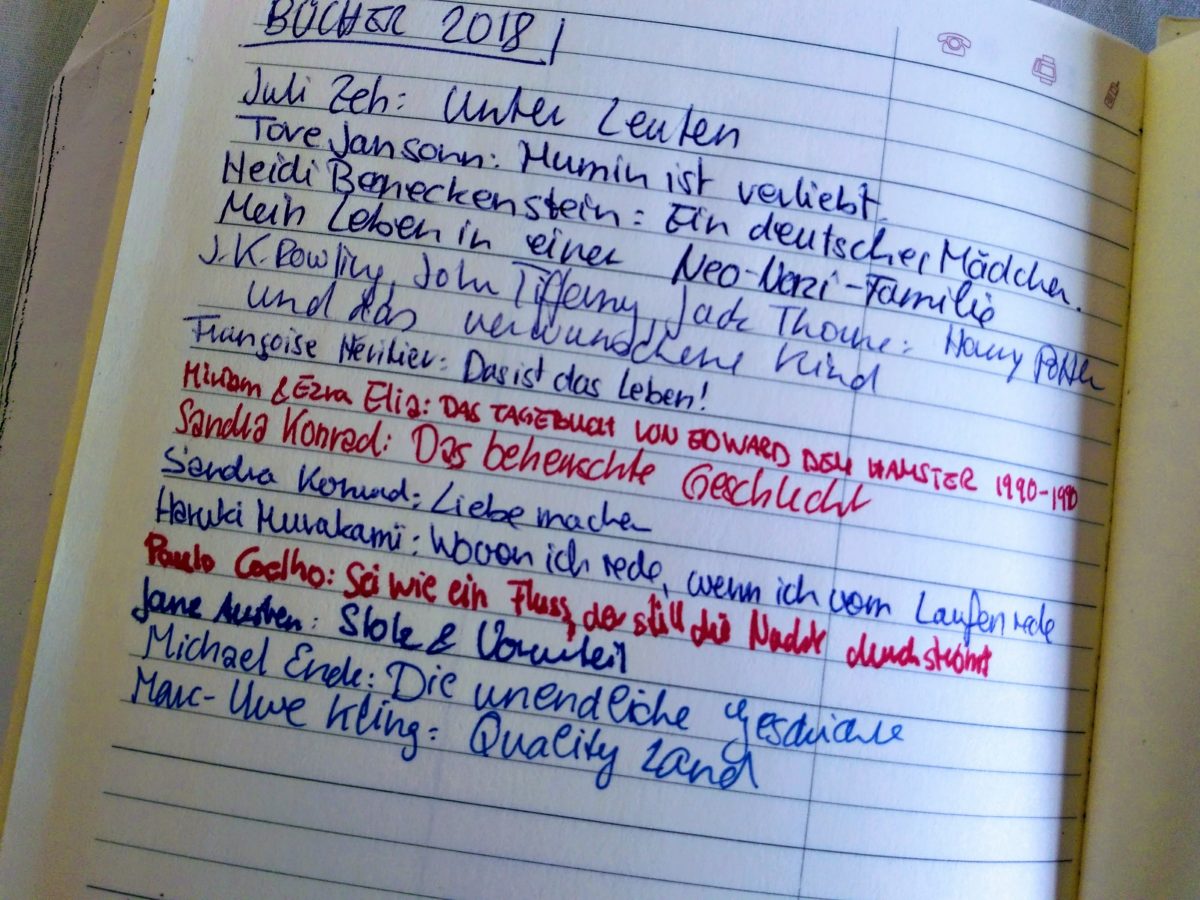 BÜCHER 2018
Juli Zeh: Unter Leuten
Tove Jansonn: Mumin ist verliebt.
Heidi Beneckenstein: Ein deutscher Mädchen.
Mein Leben in einer Neo-Nazi-Familie
J.K. Rowling, John Tiffany, Jack Thorne: Harry Potter
und das verwunschene Kind
Françoise Héritier: Das ist das Leben!
Miriam & Ezra Elia: DAS TAGEBUCH VON EDWARD DEM HAMSTER 1990-1990
Sandra Konrad: Das beherrschte Geschlecht
Sandra Konrad: Liebe machen
Haruki Murakami: Wovon ich rede, wenn ich vom Laufen rede
Paulo Coelho: Sei wie ein Fluss, der still die Nacht durchströmt
Jane Austen: Stolz & Vorurteil
Michael Ende: Die unendliche Geschichte
Marc-Uwe Kling: Quality Land